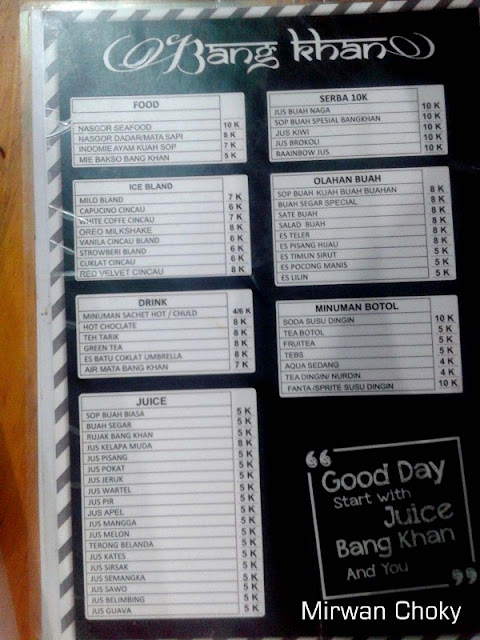 Bang Khan
FOOD
NASGOR SEAFOOD 10 K
NASGOR DADAR/MATA SAPI 8 K
INDOMIE AYAM KUAH SOP 7 K
MIE BAKSO BANG KHAN 5 K
ICE BLAND
MILO BLAND 7 K
CAPUCINO CINCAU 6 K
WHITE COFFE CINCAU 7 K
OREO MILKSHAKE 8 K
VANILA CINCAU BLAND 6 K
STROWBERI BLAND 6 K
CUKLAT CINCAU 6 K
RED VELVET CINCAU 8 K
DRINK
MINUMAN SACHET HOT / CHULD 4/6 K
HOT CHOCLATE 8 K
TEH TARIK 8 K
GREEN TEA 8 K
ES BATU COKLAT UMBRELLA 8 K
AIR MATA BANG KHAN 7 K
JUICE
SOP BUAH BIASA 5 K
BUAH SEGAR 5 K
RUJAK BANG KHAN 5 K
JUS KELAPA MUDA 8 K
JUS PISANG 5 K
JUS POKAT 5 K
JUS JERUK 5 K
JUS WARTEL 5 K
JUS PIR 5 K
JUS APEL 5 K
JUS MANGGA 5 K
JUS MELON 5 K
TERONG BELANDA 5 K
JUS KATES 5 K
JUS SIRSAK 5 K
JUS SEMANGKA 5 K
JUS SAWO 5 K
JUS BELIMBING 5 K
JUS GUAVA 5 K
SERBA 10K
JUS BUAH NAGA 10 K
SOP BUAH SPESIAL BANGKHAN 10 K
JUS KIWI 10 K
JUS BROKOLI 10 K
RAAINBOW JUS 10 K
OLAHAN BUAH
SOP BUAH KUAH BUAH BUAHAN 8 K
BUAH SEGAR SPECIAL 8 K
SATE BUAH 8 K
SALAD BUAH 8 K
ES TELER 8 K
ES PISANG HIJAU 8 K
ES TIMUN SIRUT 5 K
ES POCONG MANIS 5 K
ES LILIN 5 K
MINUMAN BOTOL
SODA SUSU DINGIN 10 K
TEA BOTOL 5 K
FRUITEA 5 K
TEBS 5 K
AQUA SEDANG 4 K
TEA DINGIN/ NURDIN 4 K
FANTA /SPRITE SUSU DINGIN 10 K
“Good Day
Start with
Juice
Bang Khan
And You”
Mirwan Choky